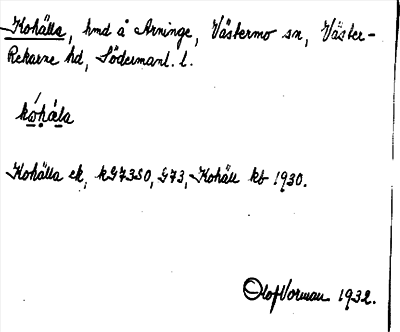 Kohälla, hmd å Arninge, Västermo sn, Väster-
Rekarne hd, Södermanl. l.
Kohälla ek, kG73SO, G73, Kohäll kb 1930.
Olof Vorman 1932.